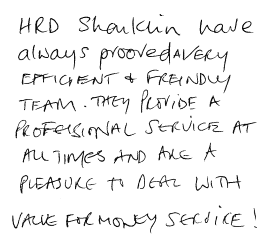 HRD Shanklin have
always prooved a very
EFFICIENT & FREINDLY
TEAM. THEY PROVIDE A
PROFESSIONAL SERVICE AT
ALL TIMES AND ARE A
PLEASURE TO DEAL WITH
VALUE FOR MONEY SERVICE!